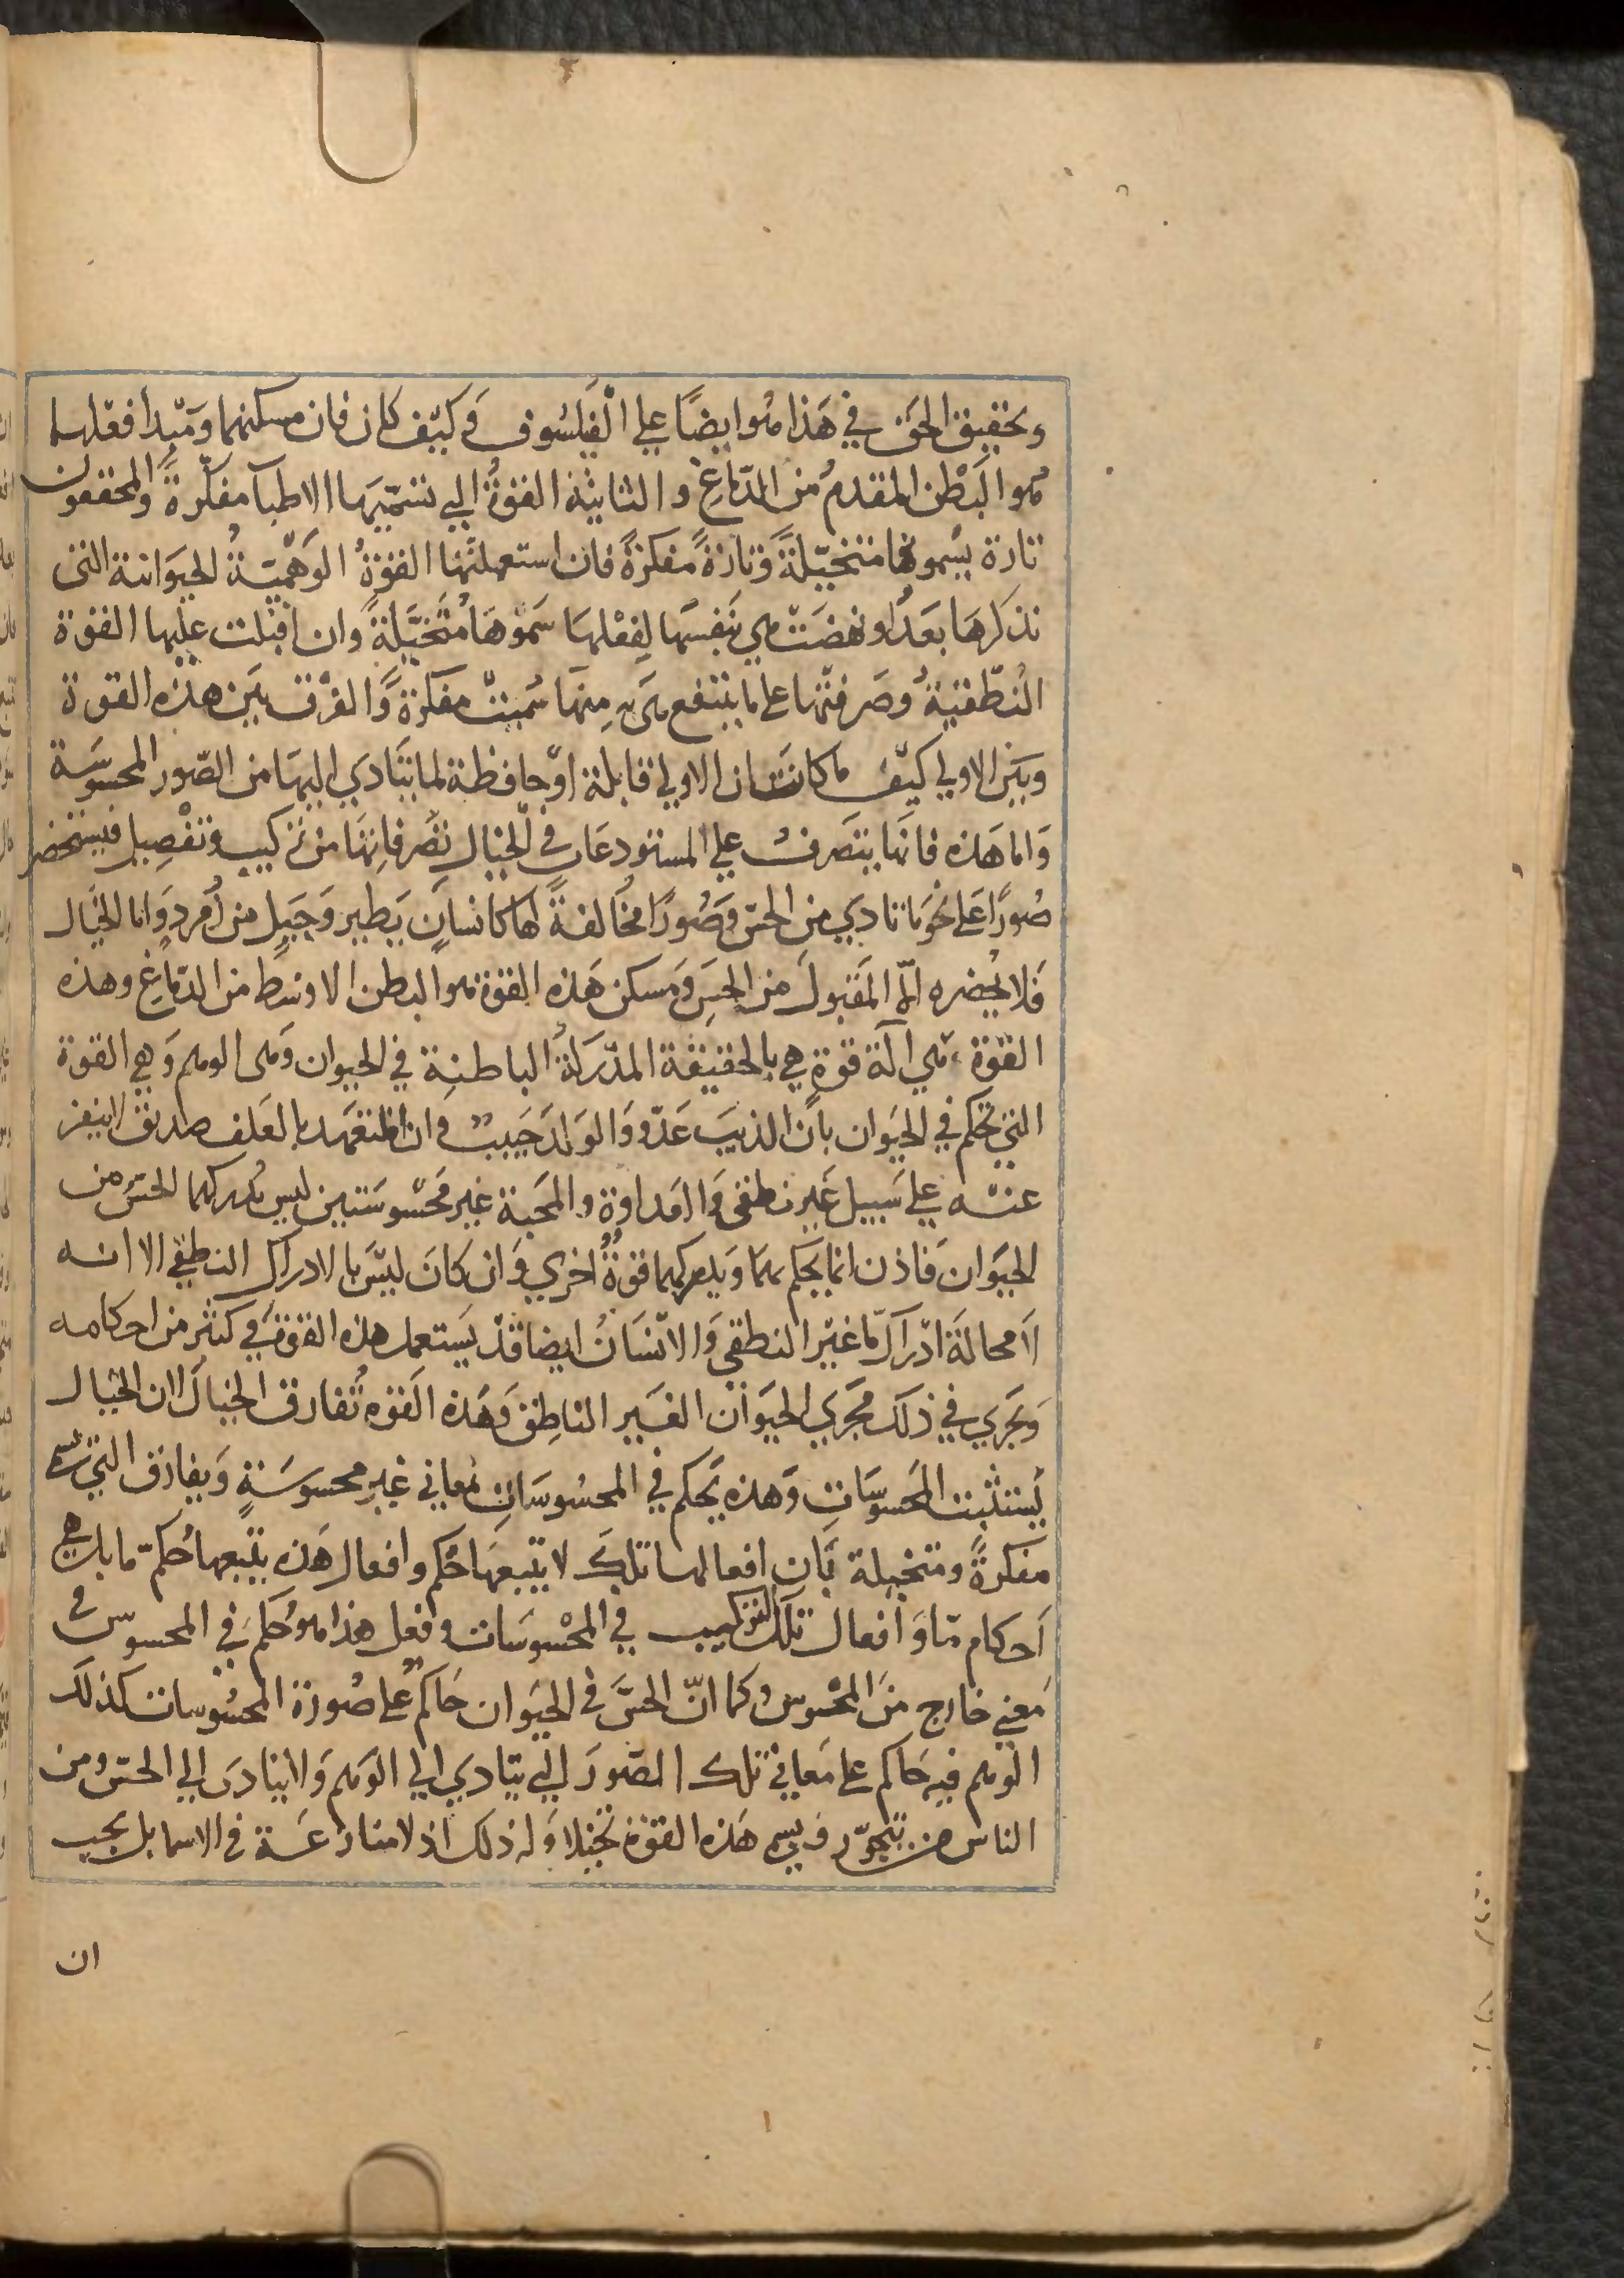 وتحقيق الحق في هَذا هُو ايضًا علي الْفَيلسُوف وَكيْف كان فان مسكنهما ومَبْدأ فعْلهما
هُو البَطْن المقدمُ من الدّمَاغ والثانية القوةُ التي تسَمّيهَا الاطبآ مفكّرةً والمحققون
تارة يسْمونها متخيّلةً وَتارةً مفكرةً فان استعملتْها القوةُ الوَهْميّةُ الحيوَانية التى
نذكرهَا بعَدُ او نهضَتْ هي بنَفسهَا لِفعْلهَا سَموّهَا مُتَخيّلةً وان اقبْلت علَيها القوة
النُطْقيّةُ وصَرفتْها علي ما ينتفع هى به مِنهَا سُميتْ مفكرةً وَالفرْق بَين هذه القوة
وبَين الاولي كيْف ما كانت ان الاولي قابلة اوْ حافظة لما يتَادي اليهَا من الصّور المحسُوسَة
وَاما هَذه فانهَا يتصَرفُ علي المستودعَات في الخْيَال تصُرفاتهَا من تركيب وتفْصِيل فيستحضر
صُورًا عَلي نحْو ما تادي من الحسّ وَصُورًا مخَالفةً لها كانسَان يَطير وَجَبَل من زُمُرد وَاما الخيَال
فَلا يحُضره الّا المَقبُول منَ الحسِ وَمسكن هَذه القوة هُو البطن الاوْسَط من الدمَاغ وهذه
القوة هي الَة قوةٍ هي بالحقيقة المدْرَكةُ الباطنِة في الحيوان وَهى الوهم وَهي القوة
التي تحْكم في الحيَوان بانَ الذيبَ عَدّو وَالوَلدَ حَبيبٌ وان المتعَهد بالعَلف صَديق لا ينفر
عنْه علي سَبيل غَير نطقى وَالعَداوة والمحَبة غير محْسُوسَتين ليس يُدركهما الحسّ من
الحيَوان فَاذن انما يحْكم بهما وَيدركهما قوةٌ اخري وَان كانَ ليْسَ بالادراك النطقي الا انه
لَا محالَةَ ادْرَاك مّا غيْر النطقى وَالانْسَانُ ايضا قَدْ يَستعمل هَذه القوة في كثير من احكامه
وَيَجري في ذلَك مجْرَي الحيَوَان الغَيَير الناطِق وَهَذه القوة تُفارق الخيَال لان الخيال
يُستثبت المحَسُوسَاتِ وَهذه يحْكم في المحسُوسَاتِ بمعاني غير محسوسَةٍ وَيفارق التي تسمى
مفكرةً ومتخيلة بَان افعالهَا تلكَ لا يتْبعهَا حُكم وافعال هَذه يتْبعهَا حُكم مّا بل هي
اَحكام مّا وَافعال تلك التركيب في المحْسوسَات وفعل هذا هو حُكم في المحسوس
بمعني خارج منَ المحْسوس وكما انّ الحسَّ في الحيَوان حَاكم عَلى صُورة المحسُوسات كذلَك
الوهم فيه حَاكم على مَعاني تلك الصّورَ التي يتادي الي الوَهم وَلا يتادى الي الحسّ ومن
الناس من يتجوّز ويسمى هَذه القوة تخيّلا وَله ذلك اذ لا منازعَة في الاسما بل يجب
ان